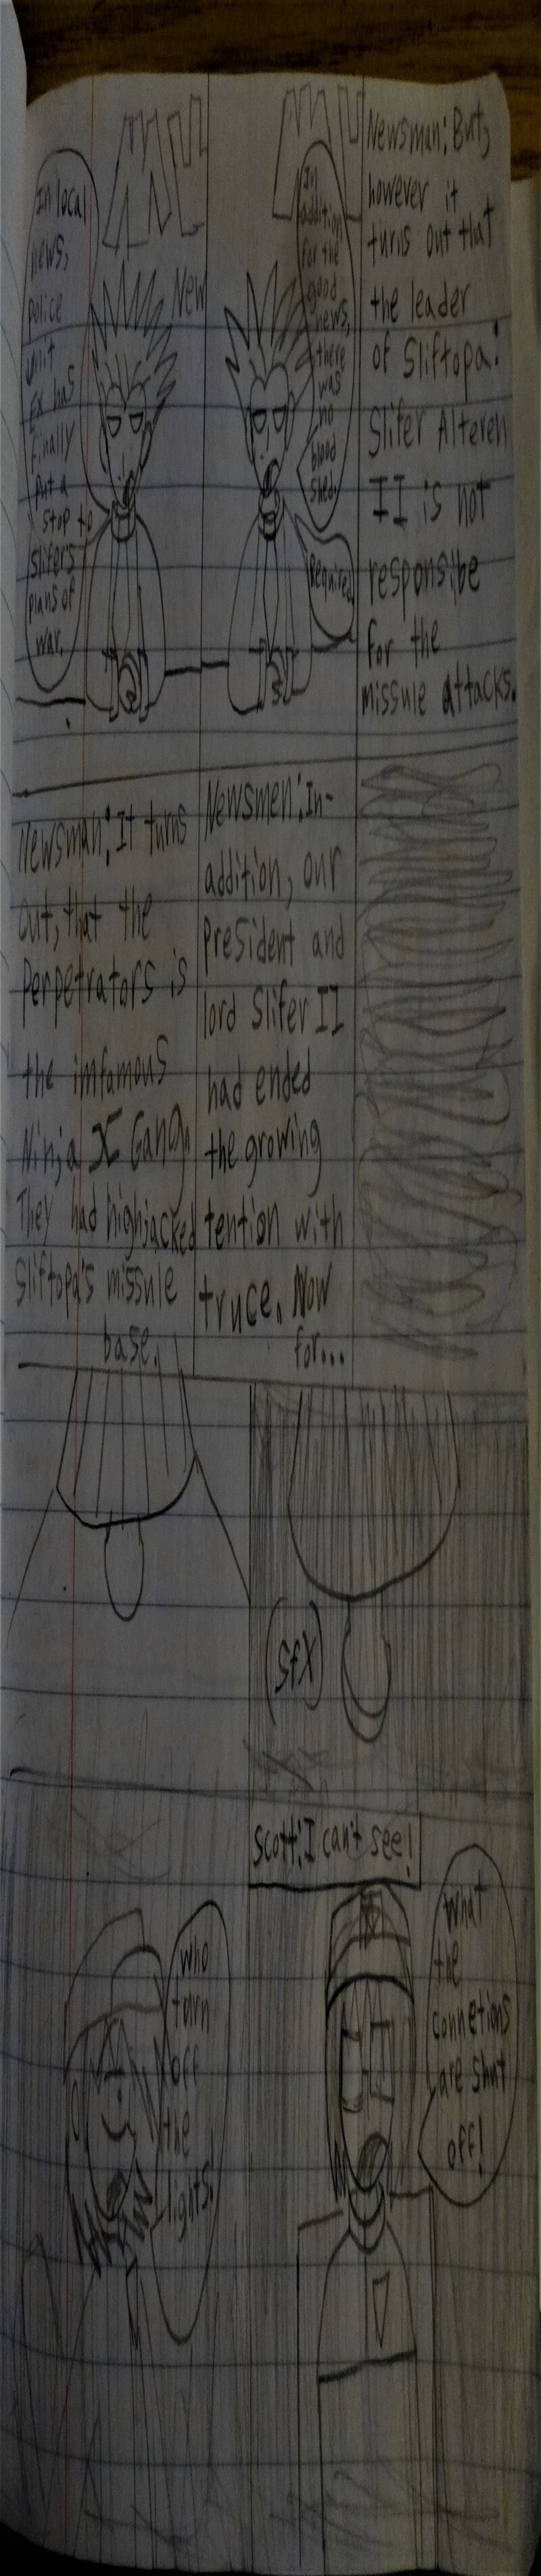 In local
news,
police
unit
Ex has
finally
put a
stop to
slifer's
plans of
war.
New
In
addition
for the
good
news,
there
was
no
blood
shed.
Required
Newsman: But,
however it
turns out that
the leader
of Sliftopa:
Slifer Altereh
II is not
responsibe
for the
missule attacks.
Newsman: It turns
out, that the
Perpetrators is
the imfamous
Ninja X Gang.
They had highjacked
Sliftopa's missule
base.
Newsmen: In-
addition, our
President and
lord Slifer II
had ended
the growing
tention with
truce. Now
for...
Scott: I can't see!
who
turn
off
the
lights!
What
the
connetions
are shut
off!